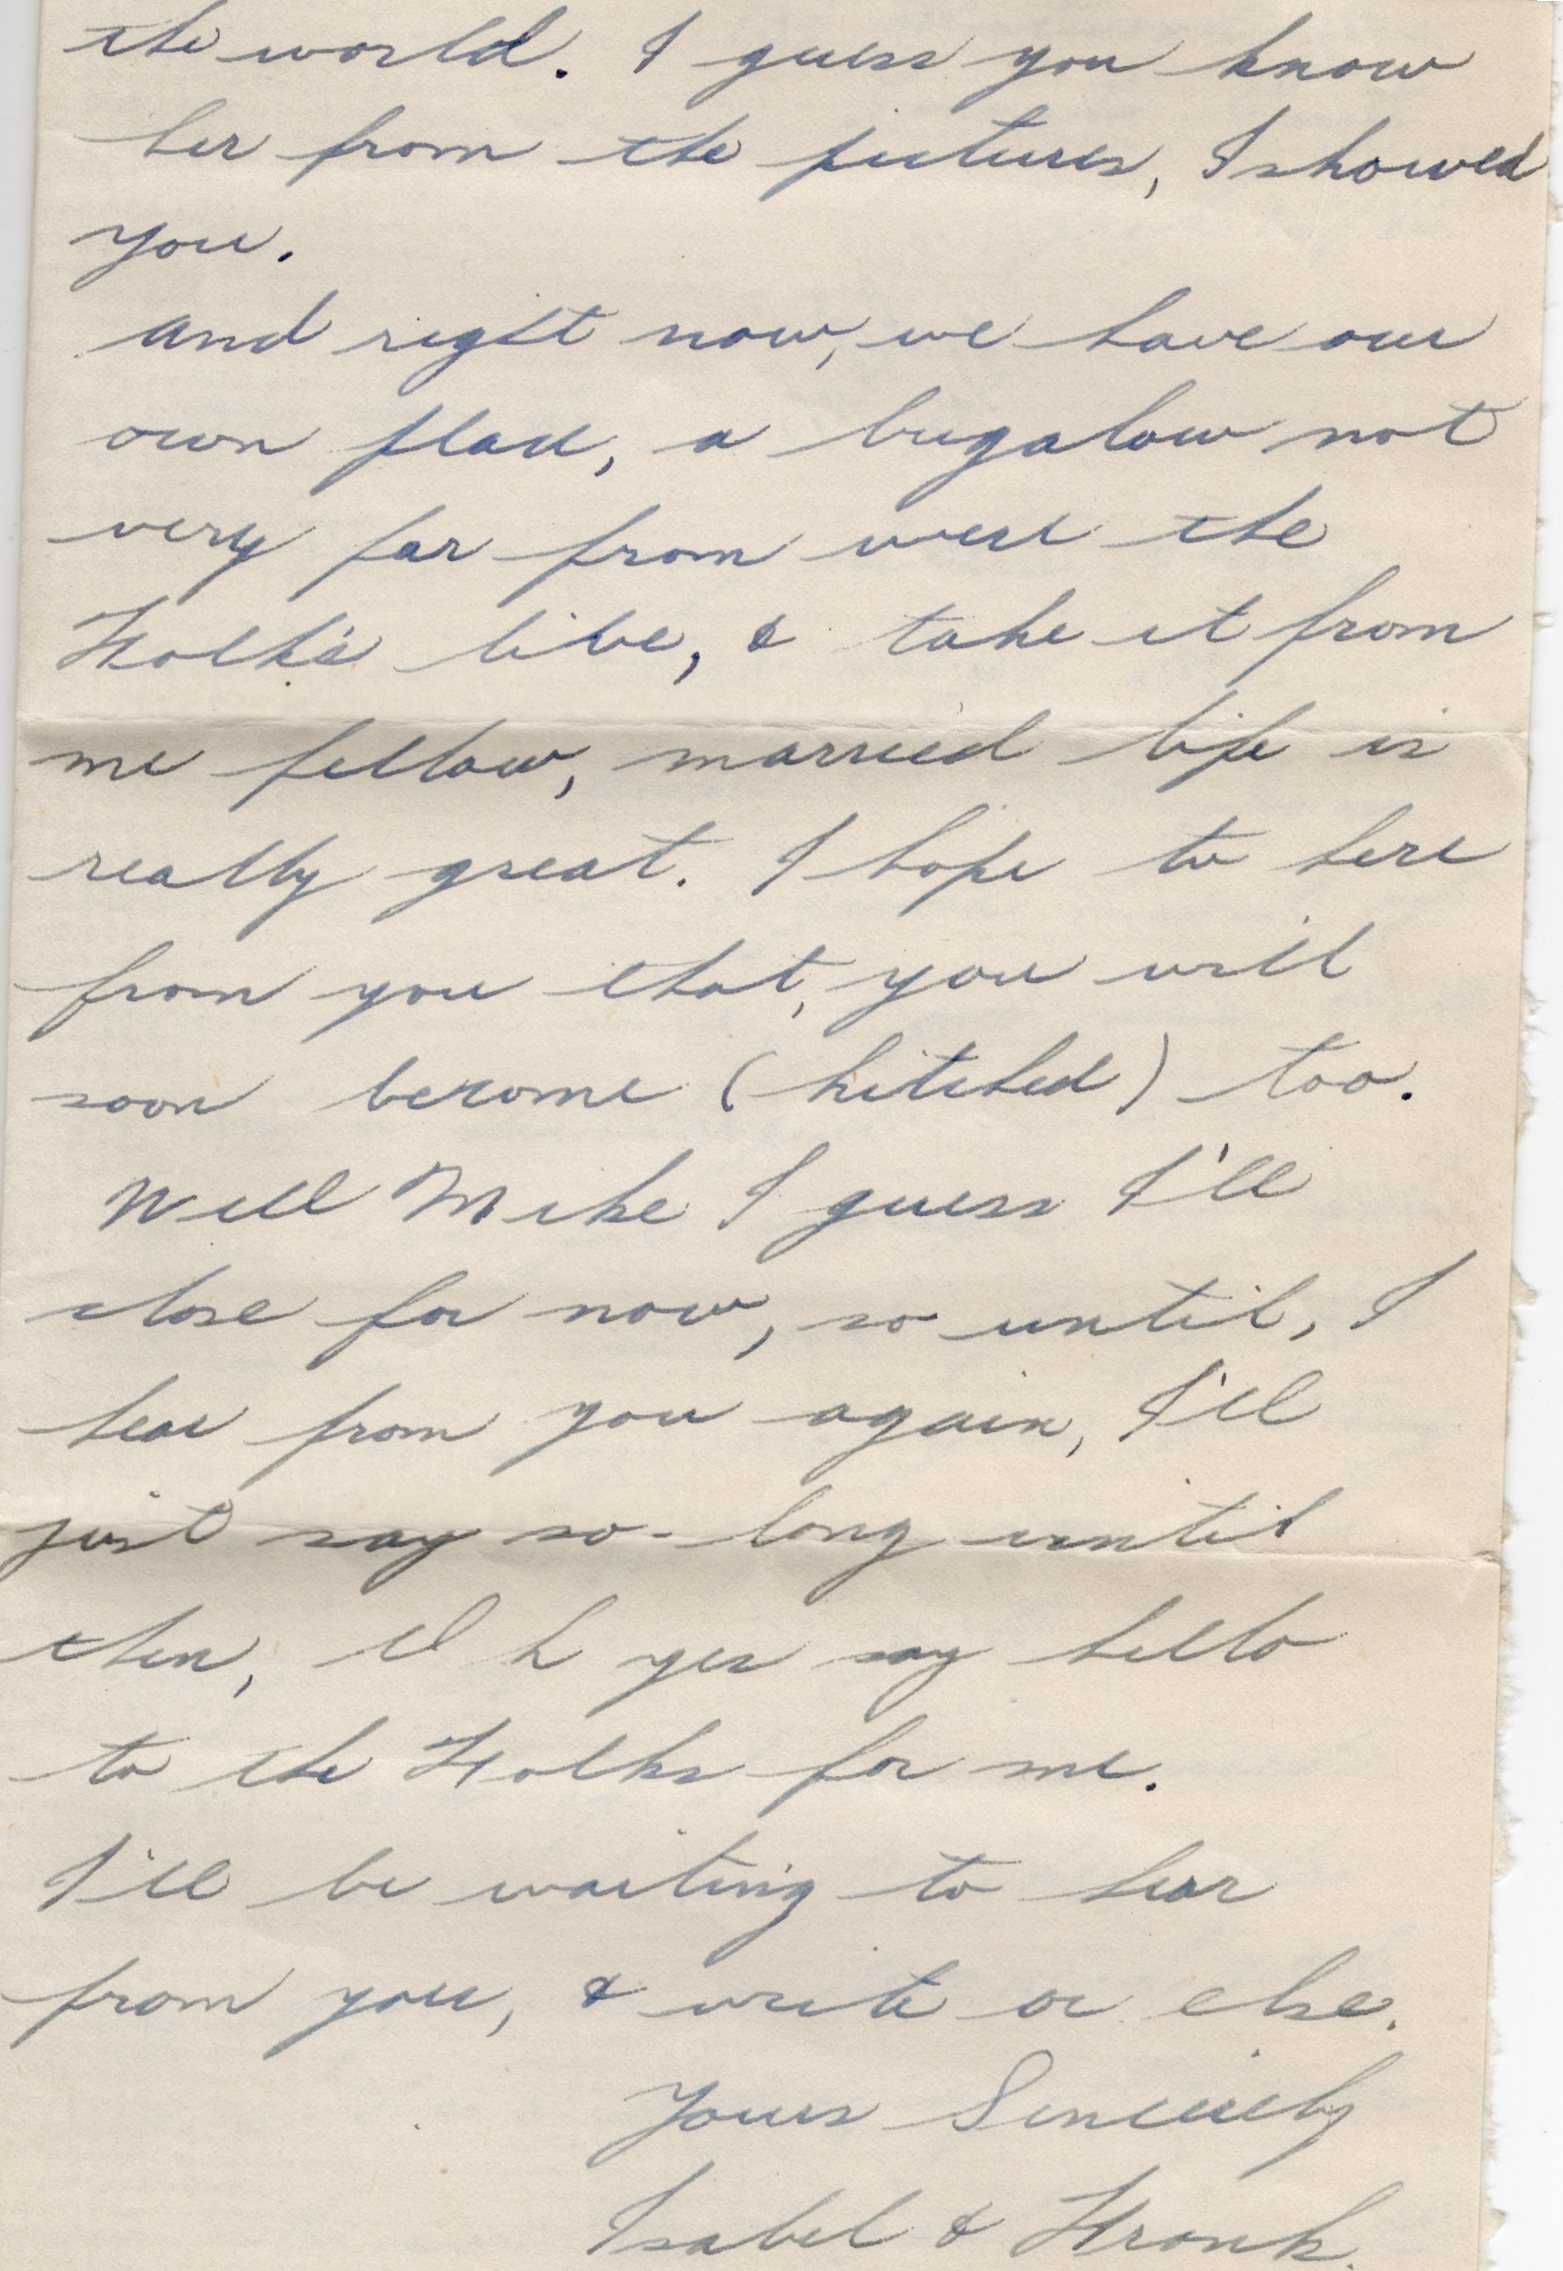 the world. I guess you know
her from the pictures, I showed
you.
and right now, we have our
own place, a bugalow not
very far from were the
Folk's live, & take it from
me fellow, married life is
really great. I hope to here
from you that, you will
soon become (hitched) too.
Well Mike I guess I'll
close for now, so until, I
hear from you again, I'll
just say so-long until
then, Oh yes say hello
to the Folks for me.
I'll be waiting to hear
from you, & write or else.
Yours Sincerely
Isabel & Frank.